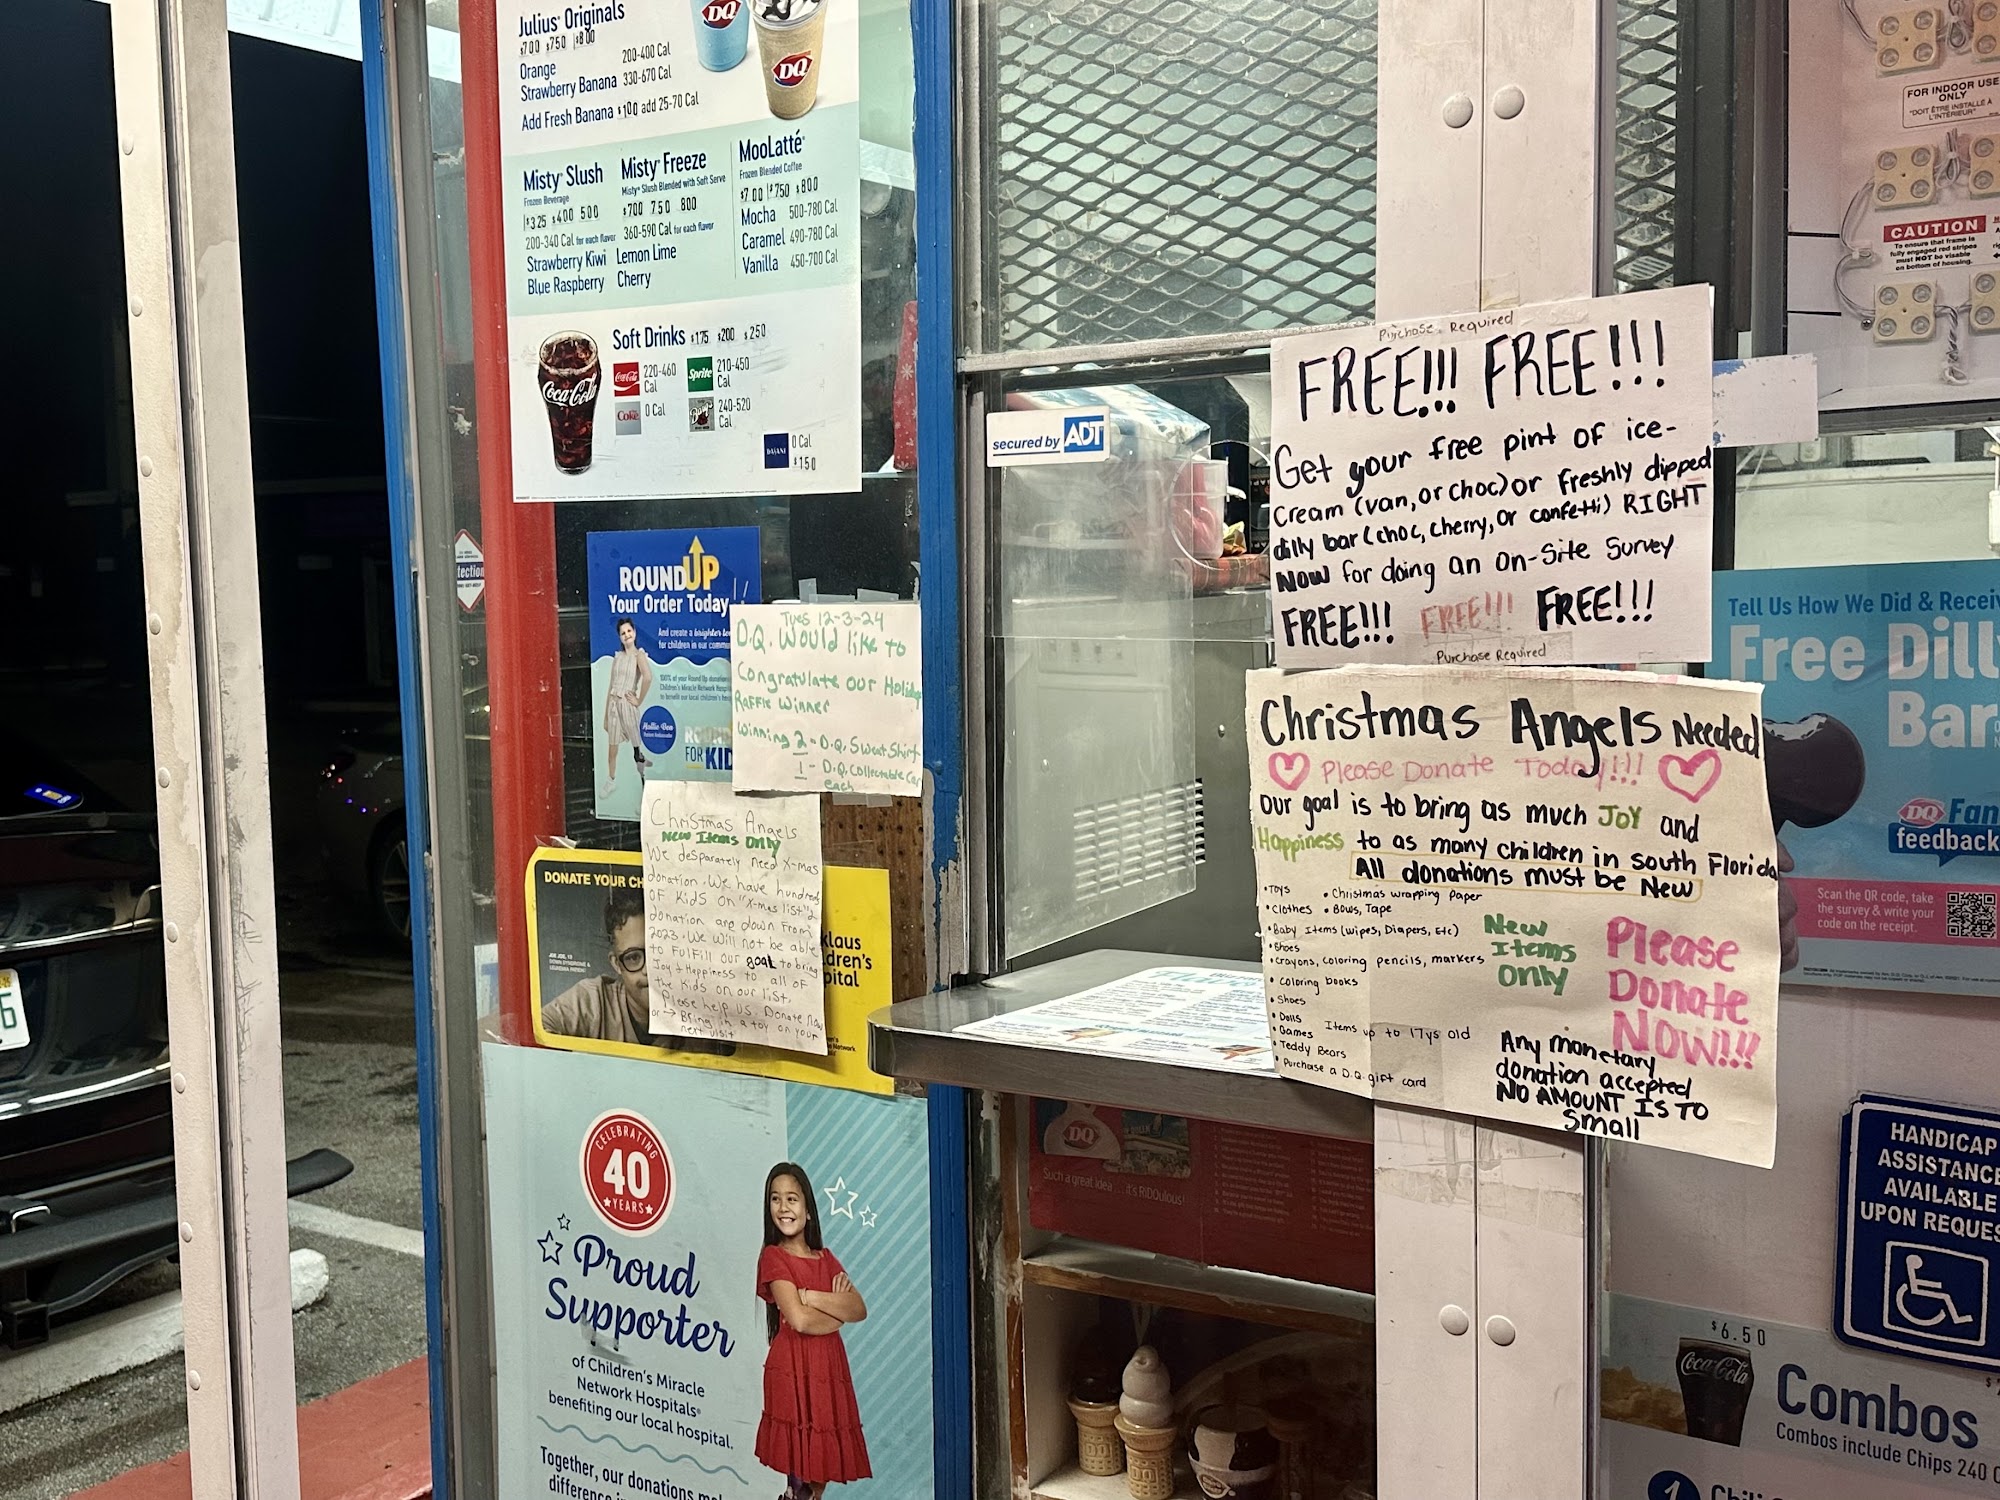 Julius® Originals
$700 $750 $800
200-400 Cal
Orange
Strawberry Banana 330-670 Cal
Add Fresh Banana $100 add 25-70 Cal
DQ
DQ
Misty® Slush
Frozen Beverage
$325 $400 500
200-340 Cal for each flavor
Strawberry Kiwi
Blue Raspberry
Misty® Freeze
Misty® Slush Blended with Soft Serve
$700 750 800
360-590 Cal for each flavor
Lemon Lime
Cherry
MooLatté®
Frozen Blended Coffee
$700 $750 $800
Mocha 500-780 Cal
Caramel 490-780 Cal
Vanilla 450-700 Cal
Soft Drinks $175 $200 $250
Coca-Cola
Coca-Cola 220-460 Cal
Sprite 210-450 Cal
Coke 0 Cal
240-520 Cal
DASANI 0 Cal
$150
ROUND UP
Your Order Today
And create a brighter
for children in our commu
100% of your Round Up donation
Children's Miracle Network Hospit
to benefit our local children's
ROUND
FOR KID
Tues 12-3-24
D.Q. Would like to
Congratulate our Holiday
Raffle Winner
Winning 2 - D.Q. Sweat Shirt
1 - D.Q. Collectable Car
each
Christmas Angels
New Items Only
We desparately need X-mas
donation. We have hundreds
of Kids on "X-mas list" &
donation are down from
2023. We will not be able
to Fulfill our goal to bring
Joy + Happiness to all of
the Kids on our list.
Please help us. Donate now
or → Bring in a toy on your
next visit
DONATE YOUR CH
JOE JOE, 10
DOWN SYNDROME &
LEUKEMIA PATIENT
klaus
dren's
pital
CELEBRATING
40
YEARS
Proud
Supporter
of Children's Miracle
Network Hospitals®
benefiting our local hospital.
Together, our donations
difference
secured by ADT
Purchase Required
FREE!!! FREE!!!
Get your free pint of ice-
cream (van, or choc) or freshly dipped
dilly bar (choc, cherry, or confetti) RIGHT
NOW for doing an on-site survey
FREE!!! FREE!!! FREE!!!
Purchase Required
Christmas Angels Needed
Please Donate Today!!!
Our goal is to bring as much JOY and
Happiness to as many children in south Florida
All donations must be New
• Toys • Christmas wrapping Paper
• Clothes • Bows, Tape
• Baby Items (wipes, Diapers, Etc)
• Shoes
• crayons, coloring pencils, markers
• coloring books
• Shoes
• Dolls
• Games Items up to 17ys old
• Teddy Bears
• Purchase a D.Q. gift card
New
Items
Only
Please
Donate
NOW!!!
Any monetary
donation accepted
NO AMOUNT IS TO
Small
DQ
Such a great idea ... it's RIDQulous!
FOR INDOOR USE
ONLY
"DOIT ÊTRE INSTALLÉ À
L'INTÉRIEUR"
CAUTION
To ensure that frame is
fully engaged red stripes
must NOT be visable
on bottom of housing.
Tell Us How We Did & Receiv
Free Dilly
Bar
DQ Fan
feedback
Scan the QR code, take
the survey & write your
code on the receipt.
HANDICAP
ASSISTANCE
AVAILABLE
UPON REQUES
$6.50
Coca-Cola
Combos
Combos include Chips 240 C
1
Chili